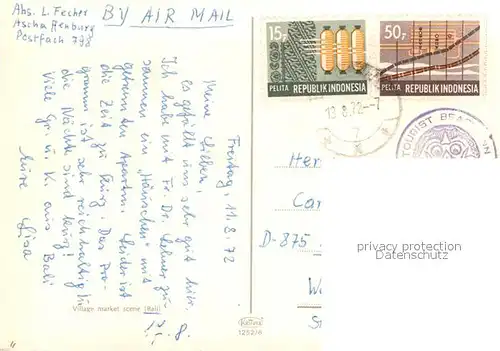 Abs. L. Fecher
Aschaffenburg
Postfach 798
BY AIR MAIL
15r
PELITA REPUBLIK INDONESIA
50r
PELITA REPUBLIK INDONESIA
13.8.72.-7
7
TOURIST BEACH INN
Freitag, 11.8.72
Meine Lieben,
es gefällt uns sehr gut hier.
Ich habe mit Fr. Dr. Lehner zu-
sammen ein "Häuschen" mit
getrennten Apartm. Leider ist
die Zeit zu kurz. Das Pro-
gramm ist sehr reichhaltig u.
die Nächte sind kurz!
Viele Gr. u. K. aus Bali
Eure Lisa
Her
Car
D-875
W
S
privacy protection
watermark
Village market scene (Bali)
KRÜGER
1252/6